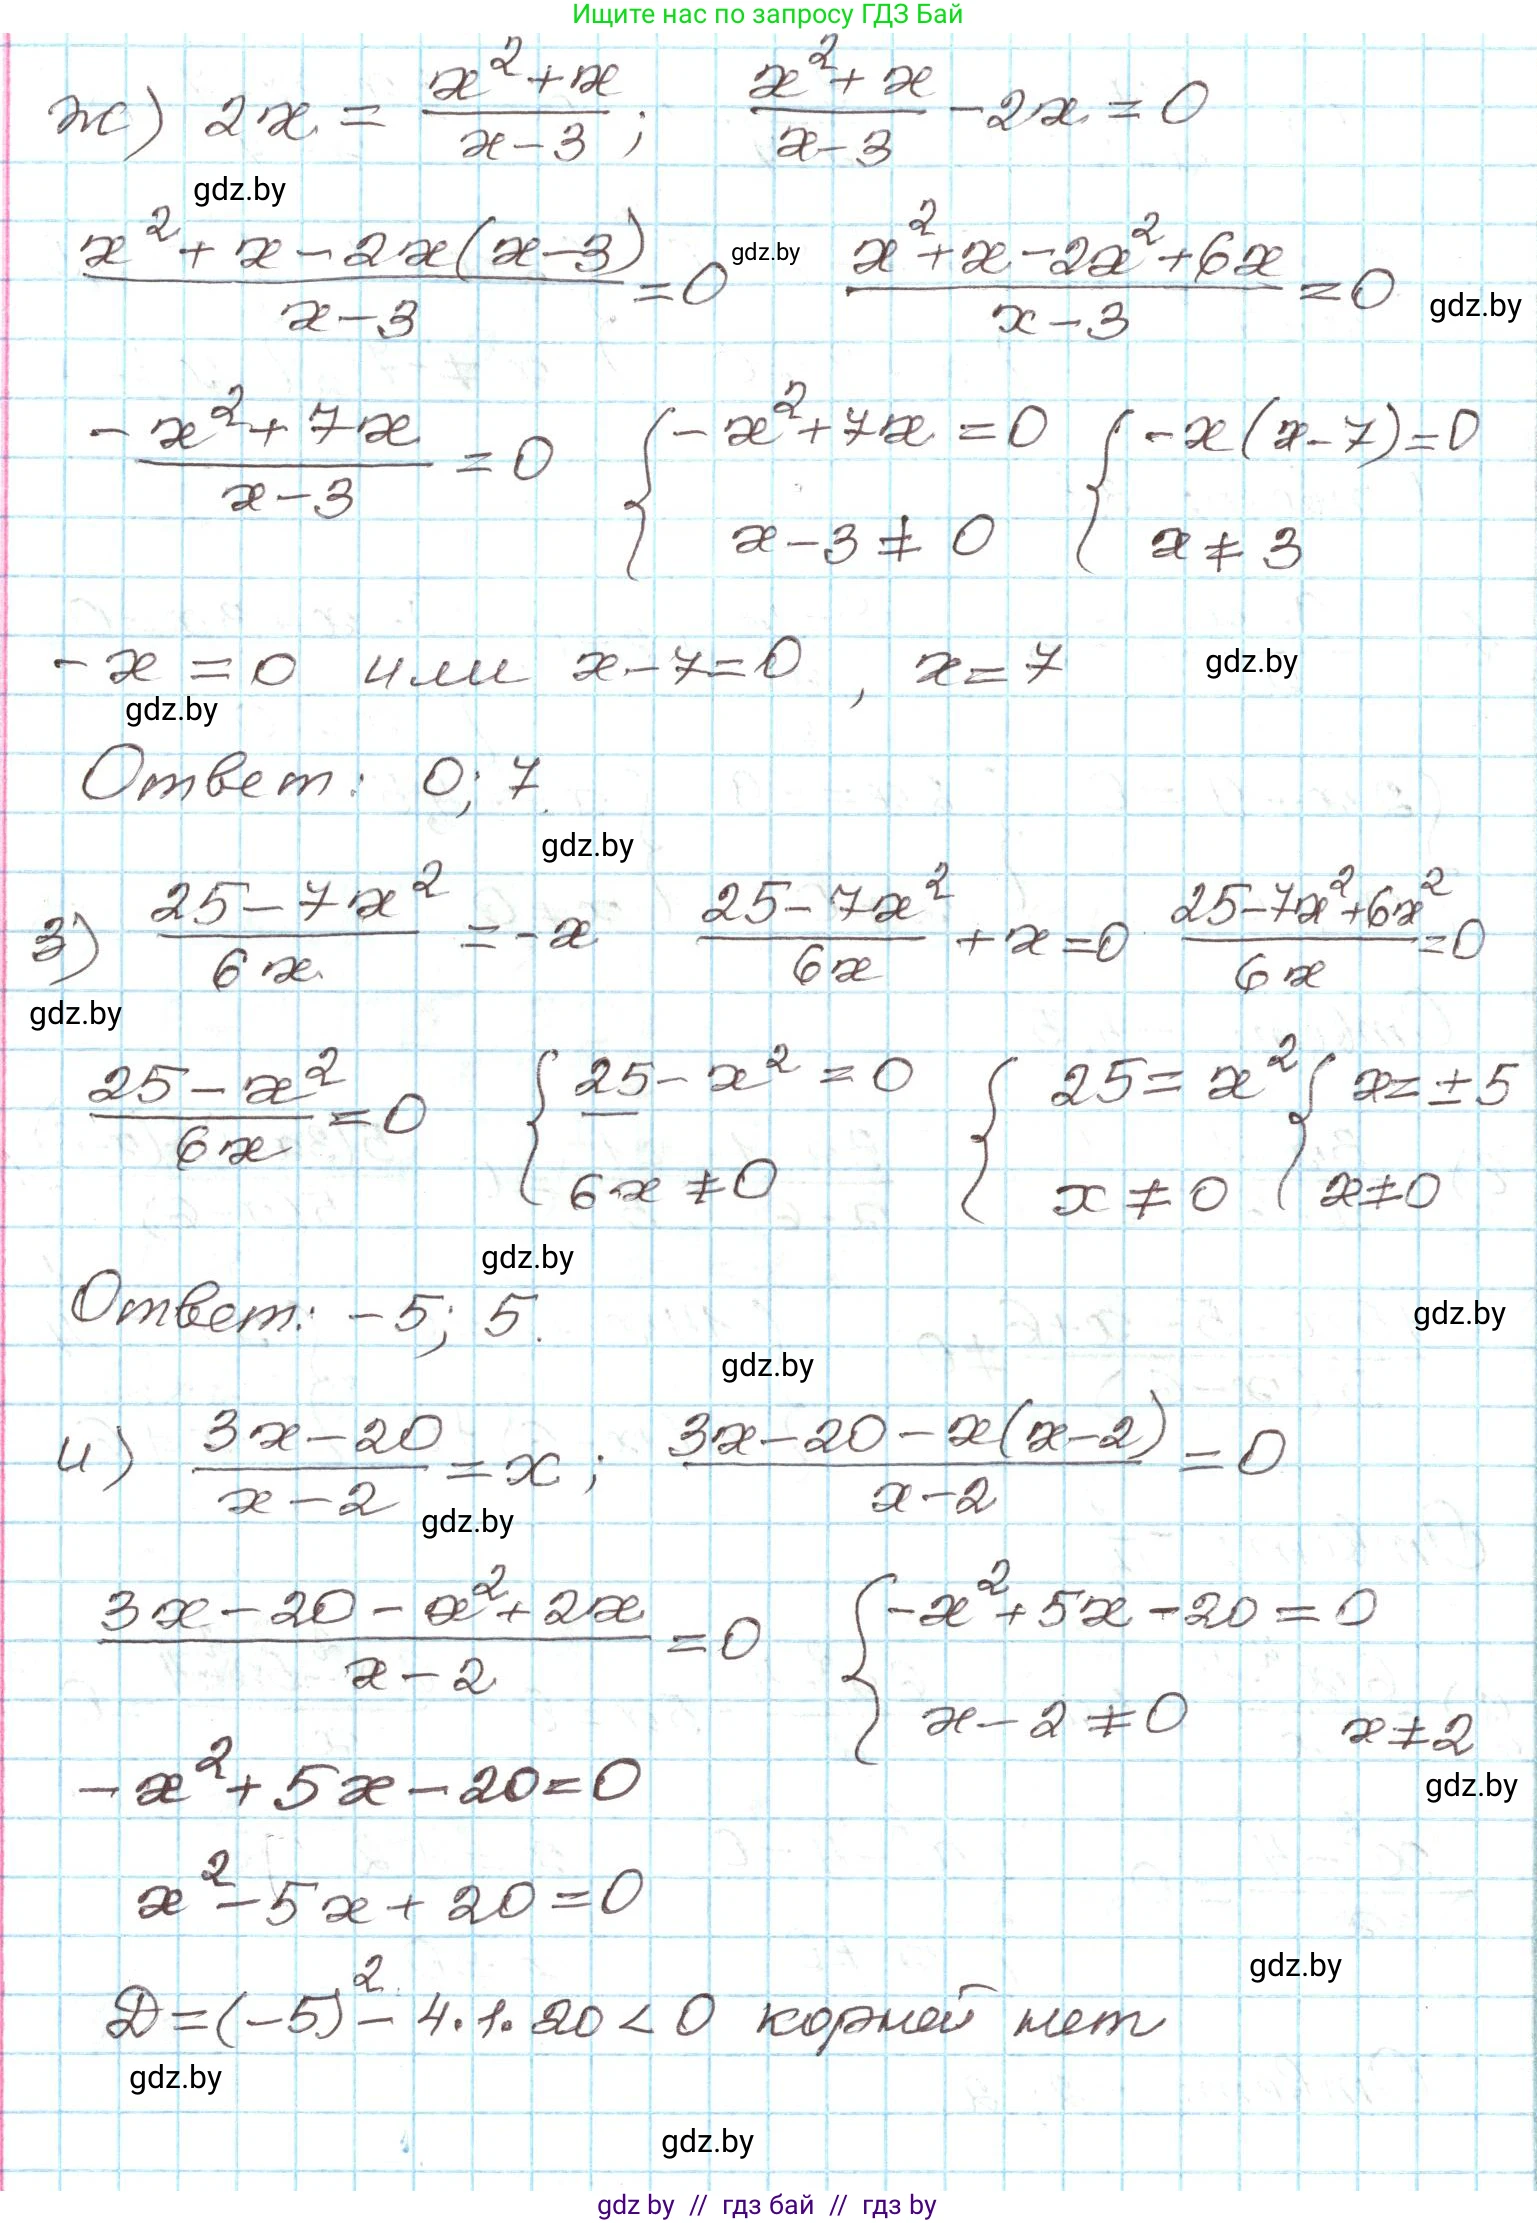 Ищите нас по запросу ГДЗ Бай
ж) 2x = (x²+x)/(x-3); (x²+x)/(x-3) - 2x = 0
gdz.by
(x²+x-2x(x-3))/(x-3) = 0 gdz.by (x²+x-2x²+6x)/(x-3) = 0 gdz.by
(-x²+7x)/(x-3) = 0 { -x²+7x = 0 { -x(x-7) = 0
x-3 ≠ 0 x ≠ 3
-x = 0 или x-7=0, x=7 gdz.by
gdz.by
Ответ: 0; 7.
gdz.by
з) (25-7x²)/(6x) = -x (25-7x²)/(6x) + x = 0 (25-7x²+6x²)/(6x) = 0
gdz.by
(25-x²)/(6x) = 0 { 25-x² = 0 { 25 = x² { x = ±5
6x ≠ 0 x ≠ 0 x ≠ 0
gdz.by
Ответ: -5; 5. gdz.by
gdz.by
и) (3x-20)/(x-2) = x; (3x-20-x(x-2))/(x-2) = 0
gdz.by
(3x-20-x²+2x)/(x-2) = 0 { -x²+5x-20 = 0
x-2 ≠ 0 x ≠ 2
-x²+5x-20=0 gdz.by
x²-5x+20=0
gdz.by
Д=(-5)²-4·1·20<0 корней нет
gdz.by
gdz.by
gdz by // гдз бай // gdz by